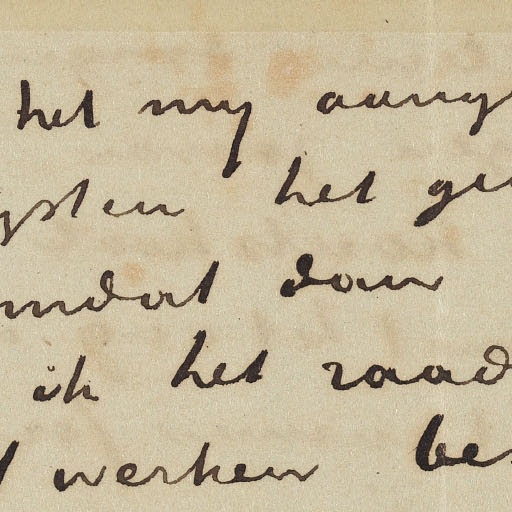 het my aang
ysten het ge
omdat dan
ik het raad
werken bes